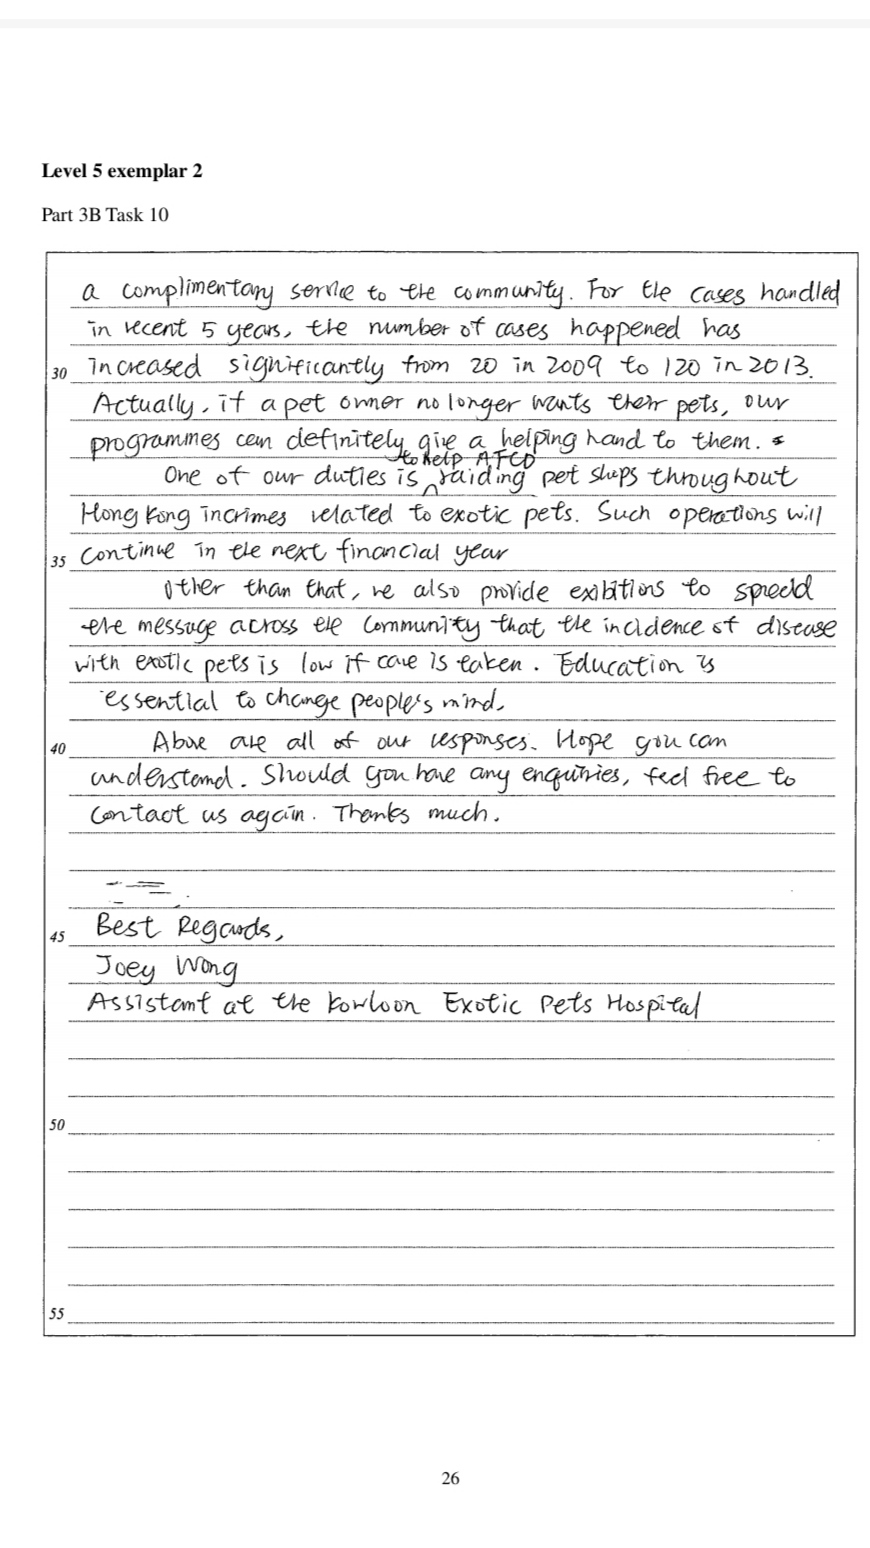 Level 5 exemplar 2
Part 3B Task 10
a complimentary service to the community. For the cases handled
in recent 5 years, the number of cases happened has
30 increased significantly from 20 in 2009 to 120 in 2013.
Actually, if a pet owner no longer wants their pets, our
programmes can definitely give a helping hand to them.
to help AFCD
One of our duties is raiding pet shops throughout
Hong Kong incrimes related to exotic pets. Such operations will
35 continue in the next financial year
Other than that, we also provide exibitions to spread
the message across the community that the incidence of disease
with exotic pets is low if care is taken. Education is
essential to change people's mind.
40 Above are all of our responses. Hope you can
understand. Should you have any enquiries, feel free to
contact us again. Thanks much.
45 Best Regards,
Joey Wong
Assistant at the Kowloon Exotic Pets Hospital
50
55
26